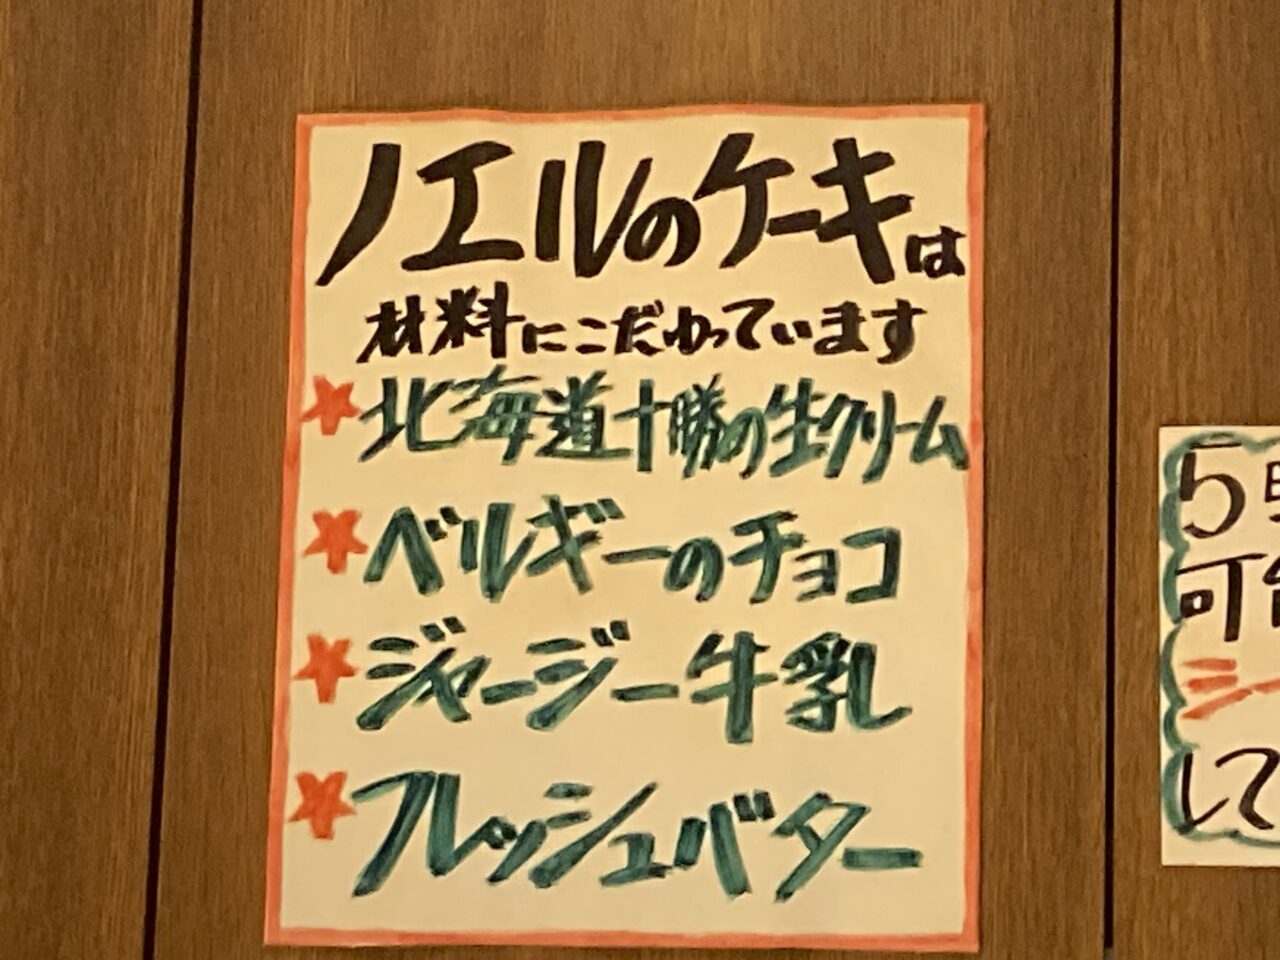 ノエルのケーキは
材料にこだわっています
★北海道十勝の生クリーム
★ベルギーのチョコ
★ジャージー牛乳
★フレッシュバター
5
可
して